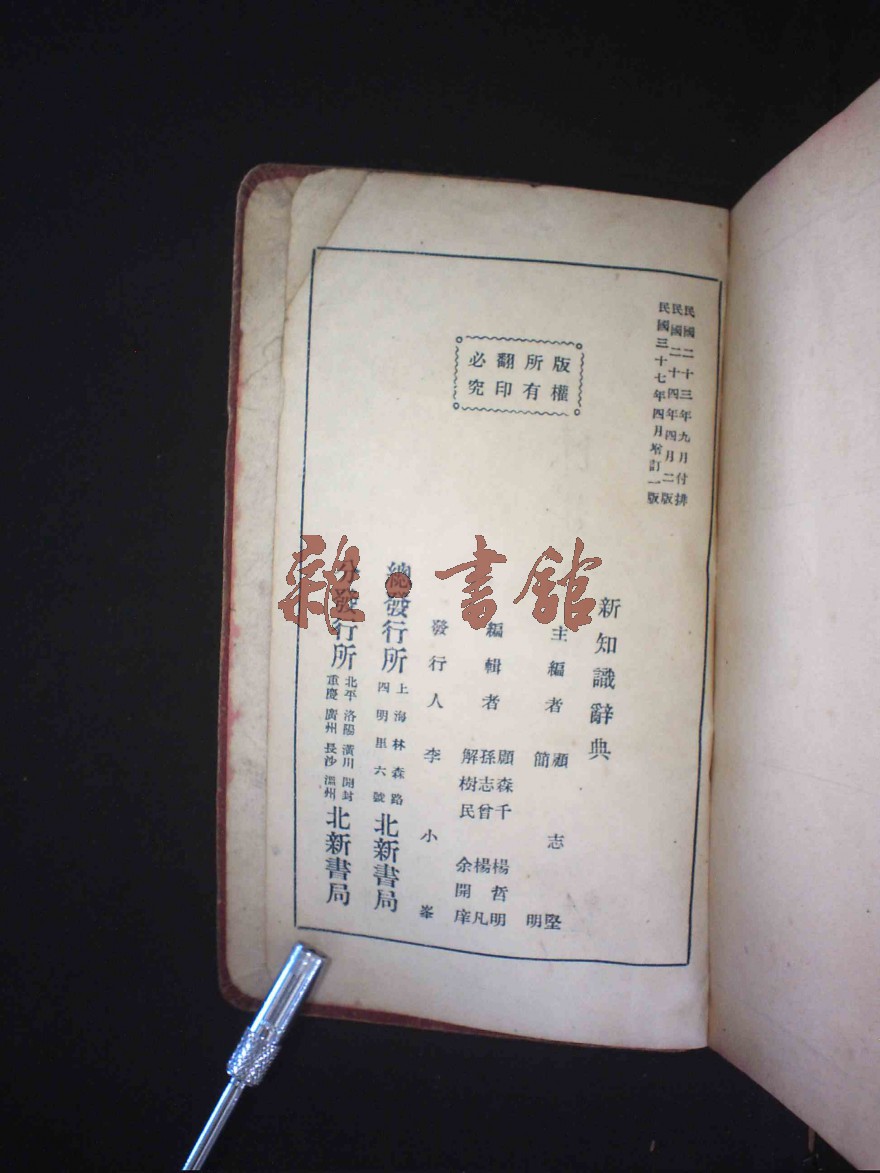 民國二十三年九月付排
民國二十四年四月二版
民國三十七年四月增訂一版
版權所有
翻印必究
新知識辭典
主編者 顧志堅
簡明
編輯者 顧森千 楊哲明
孫志曾 楊凡
解樹民 余開庠
發行人 李小峯
總發行所 上海林森路四明里六號 北新書局
分發行所 北平 洛陽 潢川 開封 重慶 廣州 長沙 溫州 北新書局
雜·書館